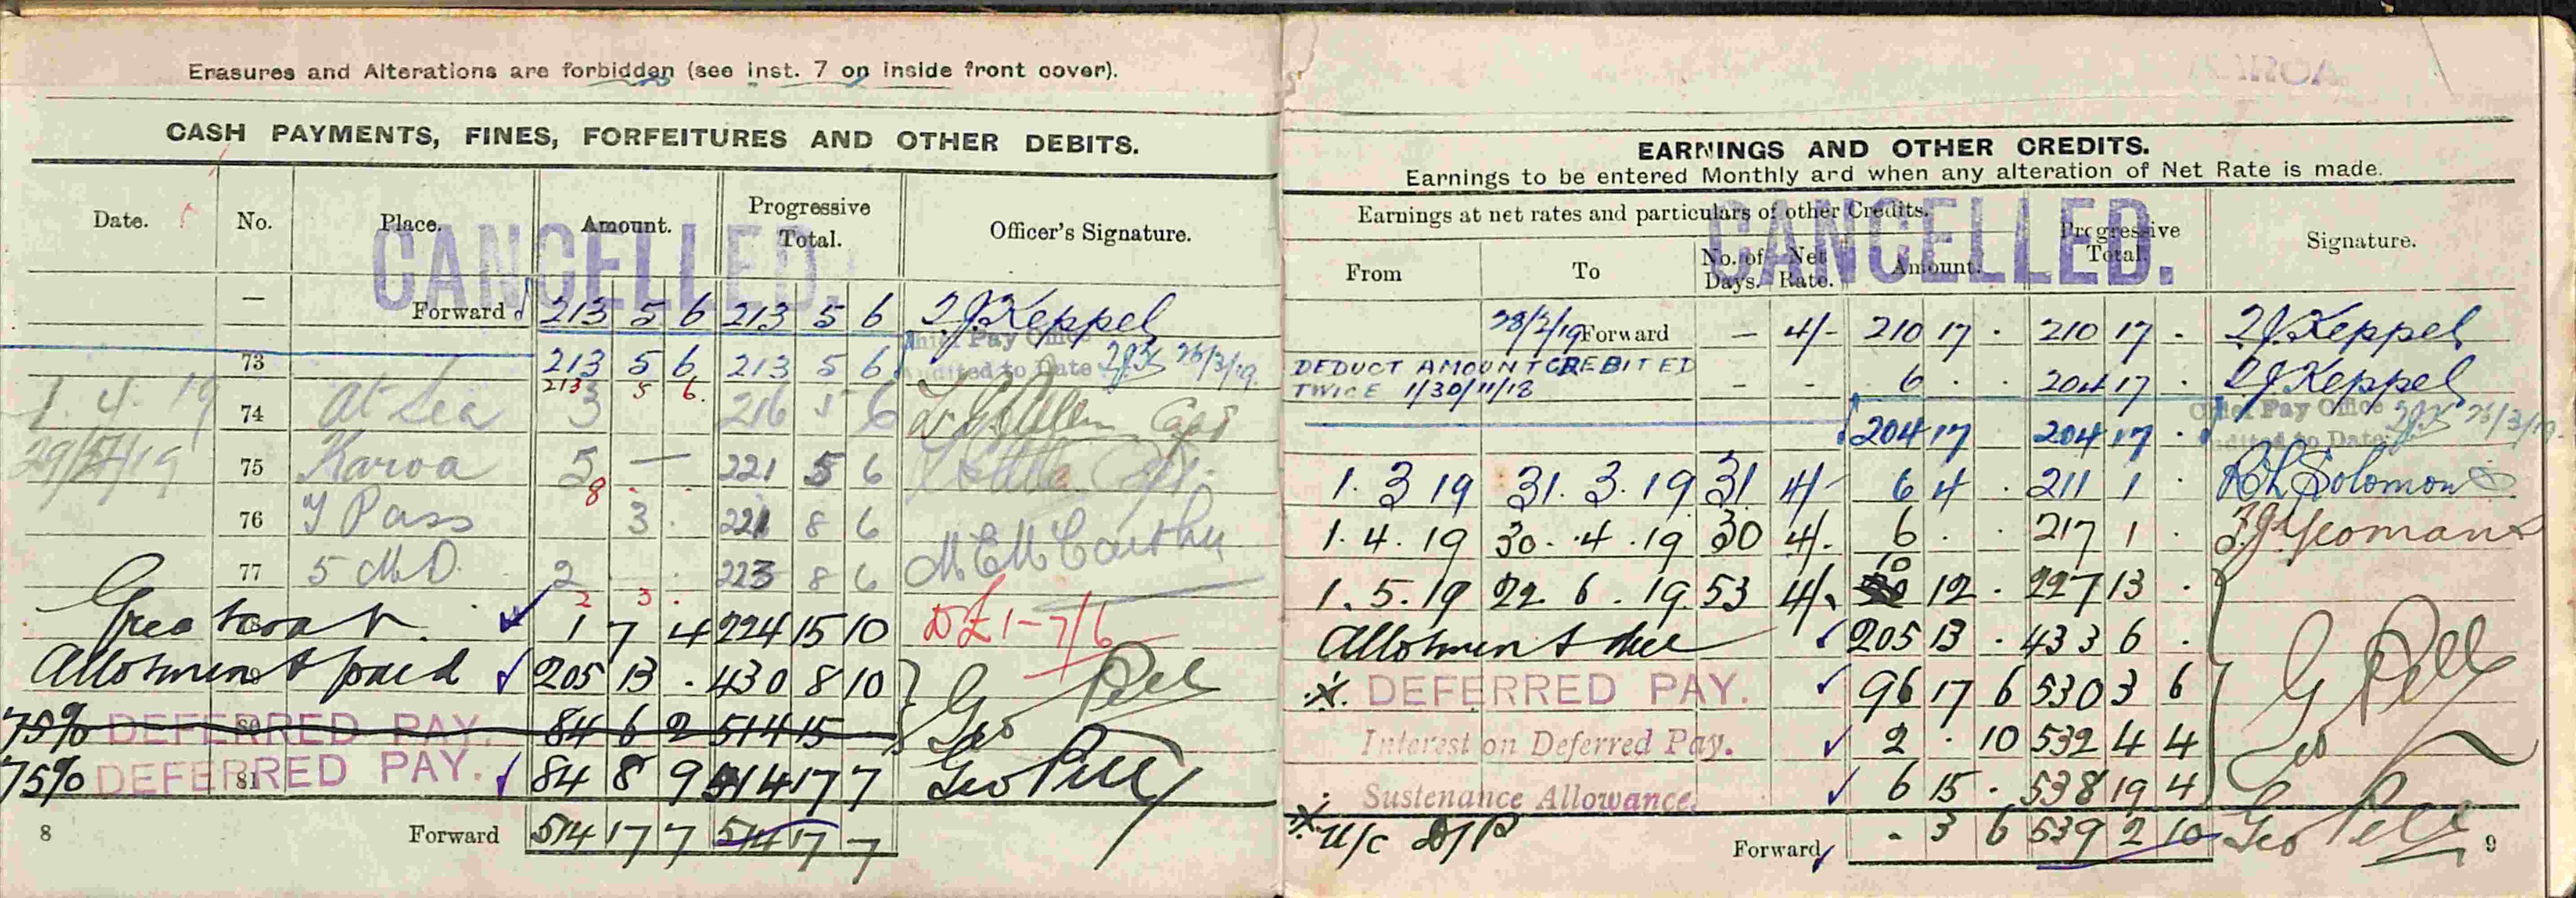 Erasures and Alterations are forbidden (see inst. 7 on inside front cover).
CASH PAYMENTS, FINES, FORFEITURES AND OTHER DEBITS.
Date. No. Place. Amount. Progressive Total. Officer's Signature.
CANCELLED.
— Forward 213 5 6 213 5 6 J Keppel
73 213 5 6 213 5 6 Pay Office Audited to Date 26/3/19.
213 5 6.
1. 4. 19 74 At Sea 3 216 5 6 Capt
29/4/19 75 Karoa 5 — 221 5 6
8 . .
76 T Pass 3 . 221 8 6
77 5 M.D. 2 . . 223 8 6 M E McCarthy
2 3 .
Greatcoat. 1 7 4 224 15 10 £1-7/6
Allotment paid 205 13 . 430 8 10 Geo Pell
75% DEFERRED PAY. 80 84 6 2 514 15
75% DEFERRED PAY. 81 84 8 9 514 17 7 Geo Pell
8 Forward 514 17 7 514 17 7
EARNINGS AND OTHER CREDITS.
Earnings to be entered Monthly and when any alteration of Net Rate is made.
Earnings at net rates and particulars of other Credits.
From To No. of Days. Net Rate. Amount. Progressive Total. Signature.
CANCELLED.
28/2/19 Forward — 4/- 210 17 . 210 17 . J Keppel
DEDUCT AMOUNT CREBITED
TWICE 1/30/11/18 - - 6 . . 204 17 . J Keppel
204 17 204 17 . Chief Pay Office Audited to Date 26/3/19.
1. 3 19 31. 3. 19 31 4/- 6 4 . 211 1 . Solomon
1. 4. 19 30. 4. 19 30 4/. 6 . . 217 1 . Yeomans
1. 5. 19 22. 6. 19. 53 4/. 10 12 . 227 13 .
Allotment due 205 13 . 433 6 .
X. DEFERRED PAY. 96 17 6 530 3 6 G Pell
Interest on Deferred Pay. 2 . 10 532 4 4
Sustenance Allowance. 6 15 . 538 19 4
X U/c D/P Forward - 3 6 539 2 10 Geo Pell 9